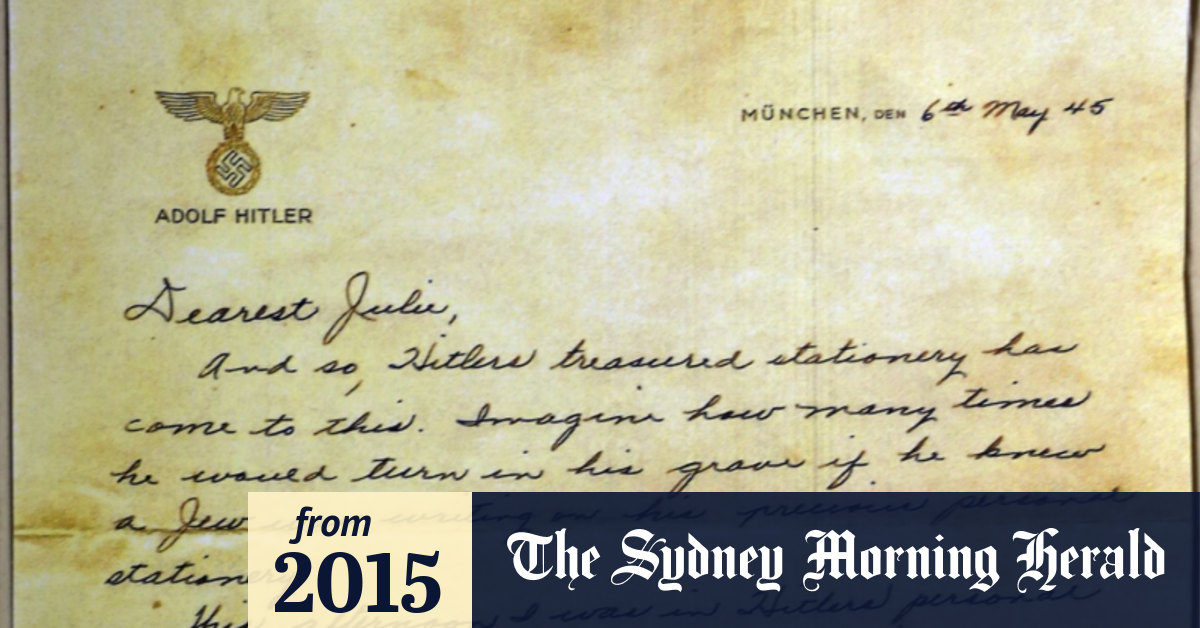 MÜNCHEN, DEN 6th May 45
ADOLF HITLER
Dearest Julie,
And so, Hitlers treasured stationery has
come to this. Imagine how many times
he would turn in his grave if he knew
a Jew writing on his precious personal
stationery
This afternoon I was in Hitlers personal
from
2015
The Sydney Morning Herald